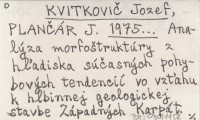 o
KVITKOVIČ Jozef,
PLANČÁR J. 1975... Ana-
lýza morfoštruktúry z
hľadiska súčasných pohy-
bových tendencií vo vzťahu
k hlbinnej geologickej
stavbe Západných Karpát.